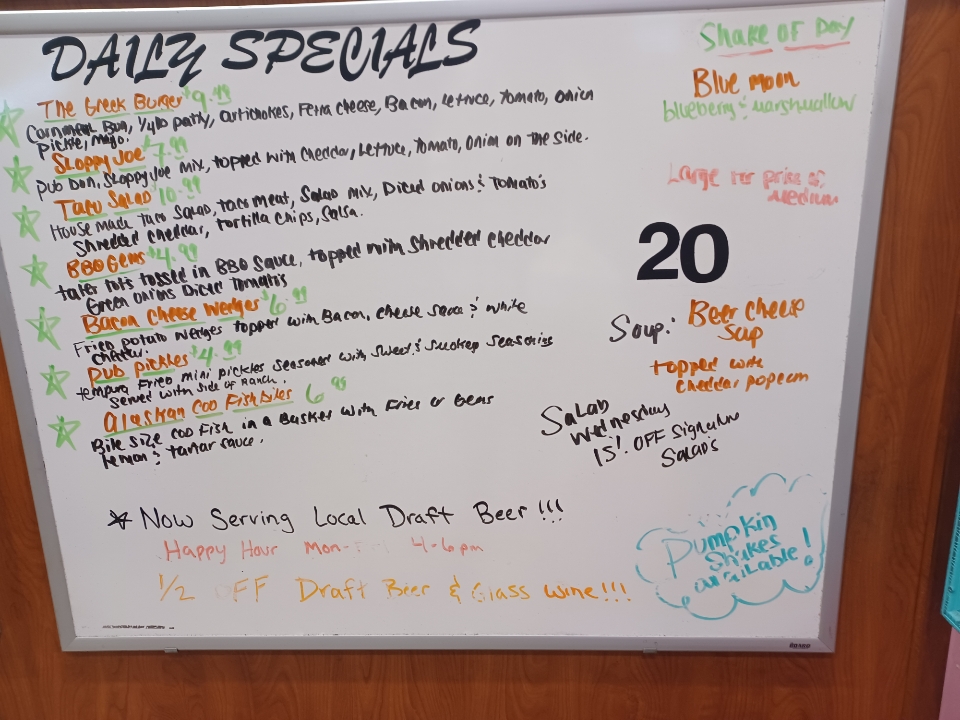 DAILY SPECIALS
The Greek Burger $9.99
Cornmeal Bun, 1/4 lb patty, artichokes, Feta cheese, Bacon, Lettuce, Tomato, onion
pickle, mayo.
Sloppy Joe $7.99
Pub Bun, Sloppy Joe mix, topped with cheddar, Lettuce, Tomato, Onion on the side.
Taco Salad $10.99
House made Taco Salad, taco meat, Salad mix, Diced onions & Tomato's
Shredded cheddar, tortilla chips, Salsa.
BBQ Gems $4.99
tater tots tossed in BBQ Sauce, topped with shredded cheddar
Green onions Diced Tomato's
Bacon Cheese Wedges $6.99
Fried potato wedges topped with Bacon, cheese sauce & white
cheddar.
Pub pickles $4.99
tempura Fried mini pickles seasoned with sweet & smokey seasoning
Served with side of Ranch.
Alaskan Cod Fish bites 6.99
Bite size cod Fish in a Basket with Fries or Gems
lemon & tartar sauce.
* Now Serving Local Draft Beer!!!
Happy Hour Mon-Fri 4-6pm
1/2 OFF Draft Beer & Glass wine!!!
Shake OF Day
Blue moon
blueberry & marshmallow
Large for price of
medium
20
Soup: Beer Cheese
Soup
topped with
cheddar popcorn
Salad
Wednesday
15% OFF Signature
Salad's
Pumpkin
Shakes
available!